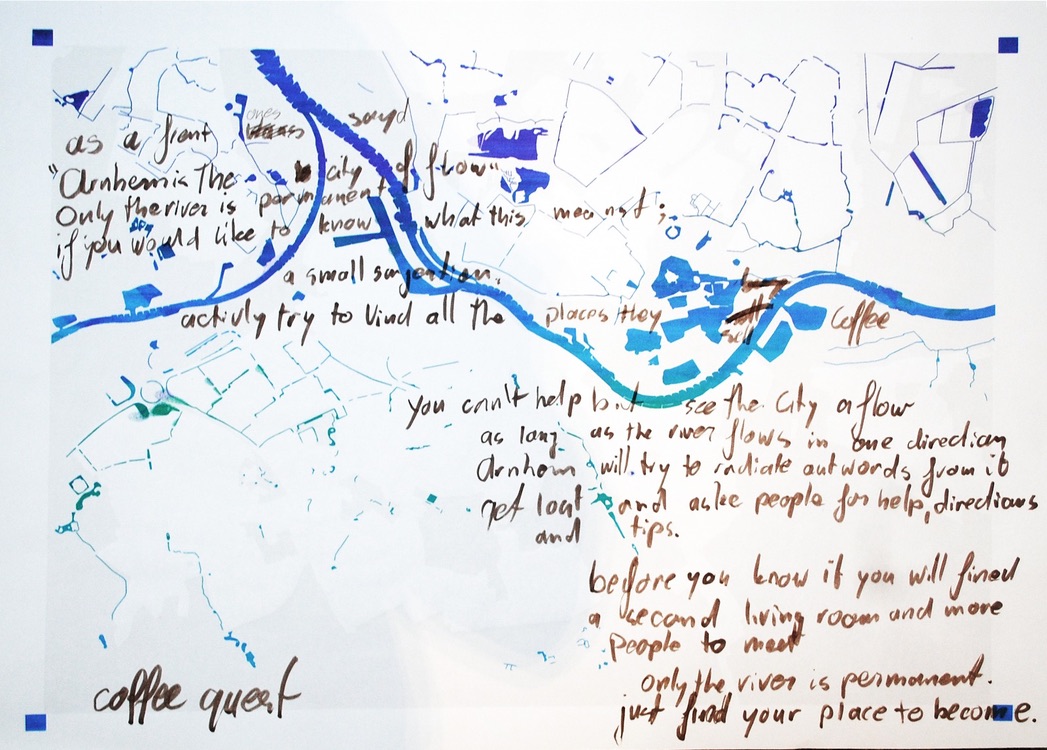 as a frent ones sayd
"Arnhem is the city of flow"
Only the river is permanent
if you would like to know what this meanst;
a small surjestion.
activly try to vind all the places they sell coffee
you cann't help but see the City a flow
as lang as the river flows in one direction
Arnhem will try to radiate outwords from it
get lost and aske people for help, directions
and tips.
before you know it you will fined
a second living room and more
people to meet
only the river is permanent.
just find your place to become.
coffee quest